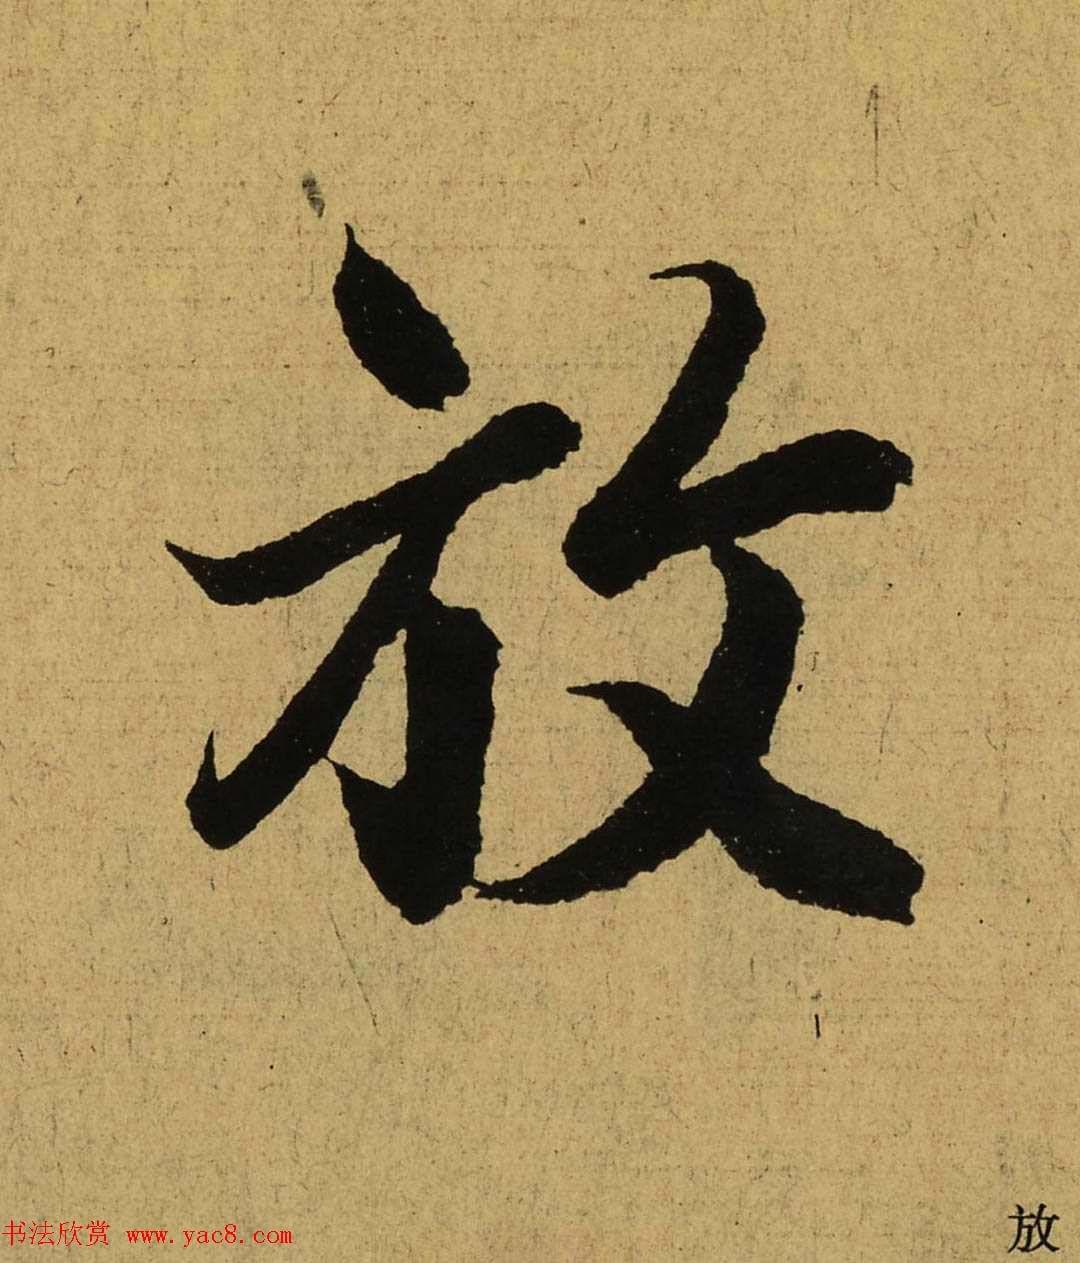 放
书法欣赏 www.yac8.com
放